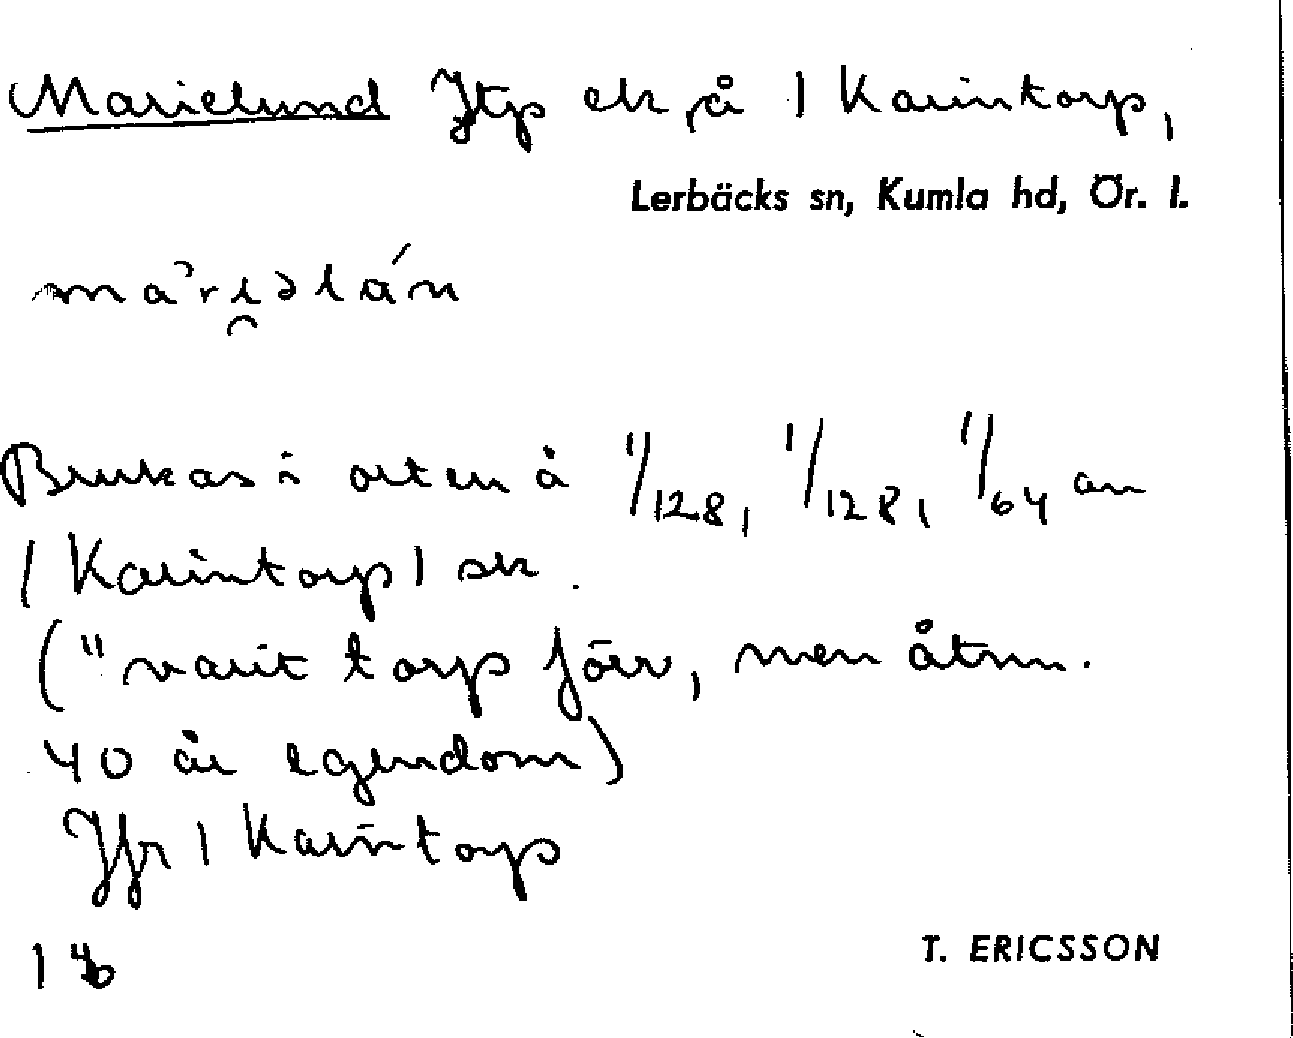 Marielund Jtp ek på 1 Karintorp,
Lerbäcks sn, Kumla hd, Ör. l.
Brukas i orten å 1/128, 1/128, 1/64 av
1 Karintorp 1 sk.
(" varit torp förr, men åtm.
40 år egendom)
Jfr 1 Karintorp
T. ERICSSON